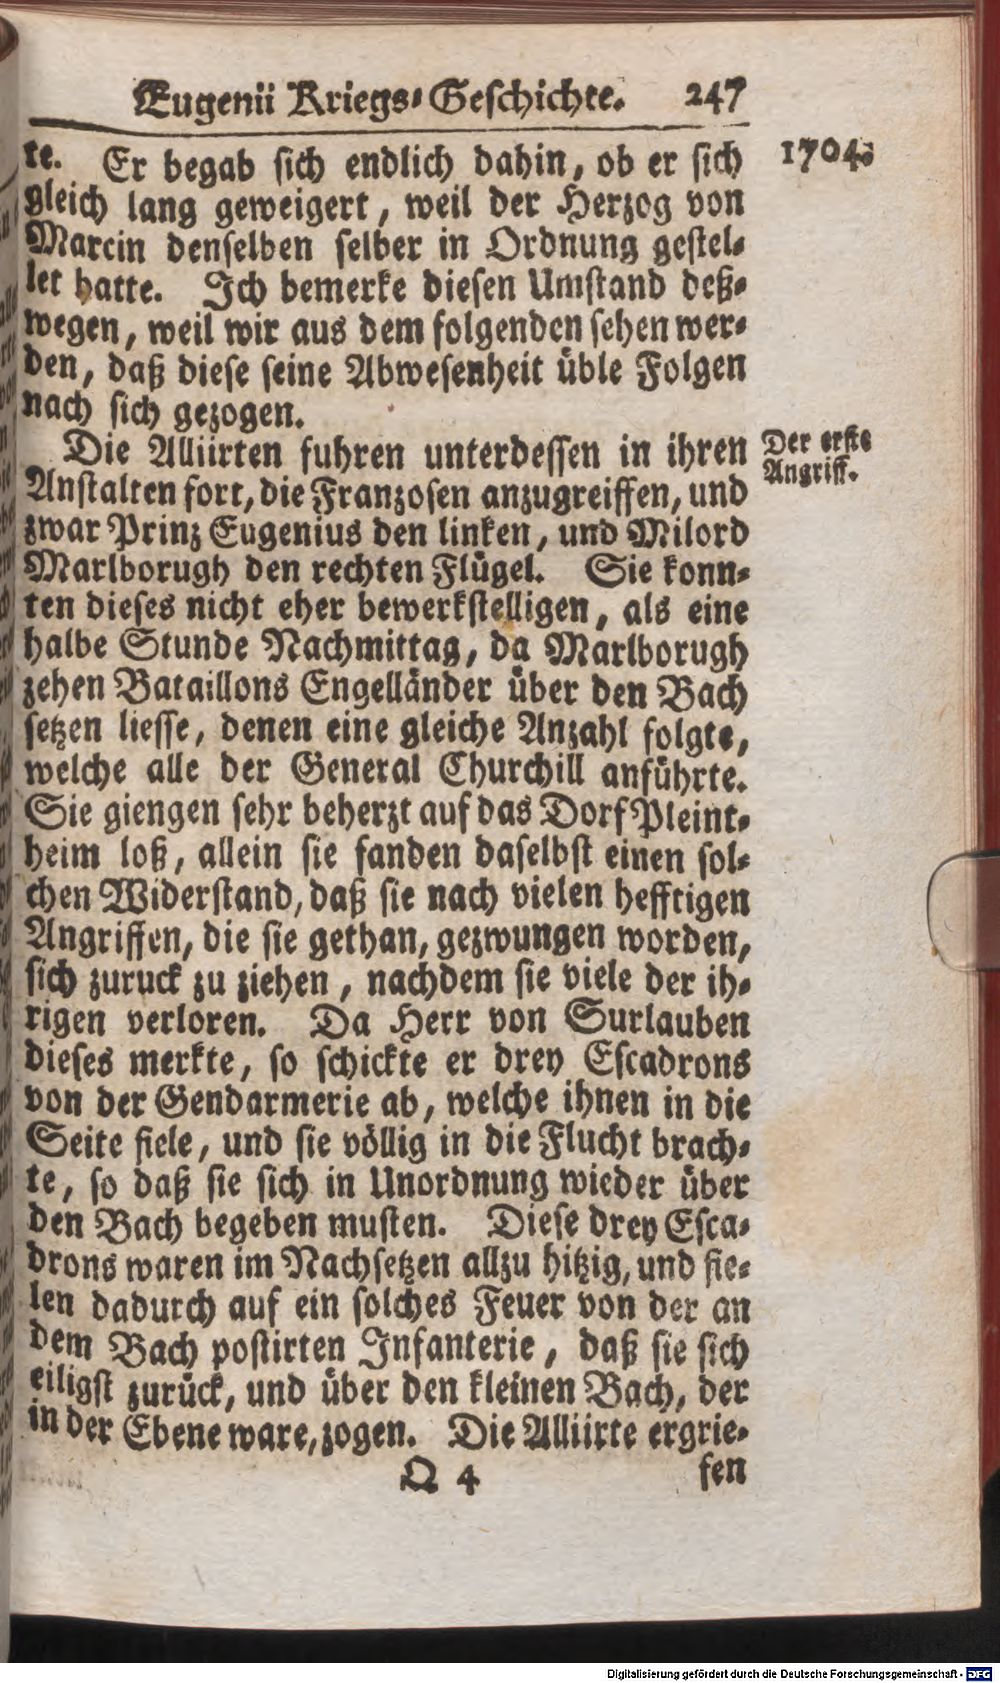 Eugenii Kriegs-Geschichte. 247
1704.
te. Er begab sich endlich dahin, ob er sich
gleich lang geweigert, weil der Herzog von
Marcin denselben selber in Ordnung gestel-
let hatte. Ich bemerke diesen Umstand deß-
wegen, weil wir aus dem folgenden sehen wer-
den, daß diese seine Abwesenheit üble Folgen
nach sich gezogen.
Der erste
Angriff.
Die Alliirten fuhren unterdessen in ihren
Anstalten fort, die Franzosen anzugreiffen, und
zwar Prinz Eugenius den linken, und Milord
Marlborugh den rechten Flügel. Sie konn-
ten dieses nicht eher bewerkstelligen, als eine
halbe Stunde Nachmittag, da Marlborugh
zehen Bataillons Engelländer über den Bach
setzen liesse, denen eine gleiche Anzahl folgte,
welche alle der General Churchill anführte.
Sie giengen sehr beherzt auf das Dorf Pleint-
heim loß, allein sie fanden daselbst einen sol-
chen Widerstand, daß sie nach vielen hefftigen
Angriffen, die sie gethan, gezwungen worden,
sich zuruck zu ziehen, nachdem sie viele der ih-
rigen verloren. Da Herr von Surlauben
dieses merkte, so schickte er drey Escadrons
von der Gendarmerie ab, welche ihnen in die
Seite fiele, und sie völlig in die Flucht brach-
te, so daß sie sich in Unordnung wieder über
den Bach begeben musten. Diese drey Esca-
drons waren im Nachsetzen allzu hitzig, und fie-
len dadurch auf ein solches Feuer von der an
dem Bach postirten Infanterie, daß sie sich
eiligst zurück, und über den kleinen Bach, der
in der Ebene ware, zogen. Die Alliirte ergrie-
Q 4 fen
Digitalisierung gefördert durch die Deutsche Forschungsgemeinschaft - DFG